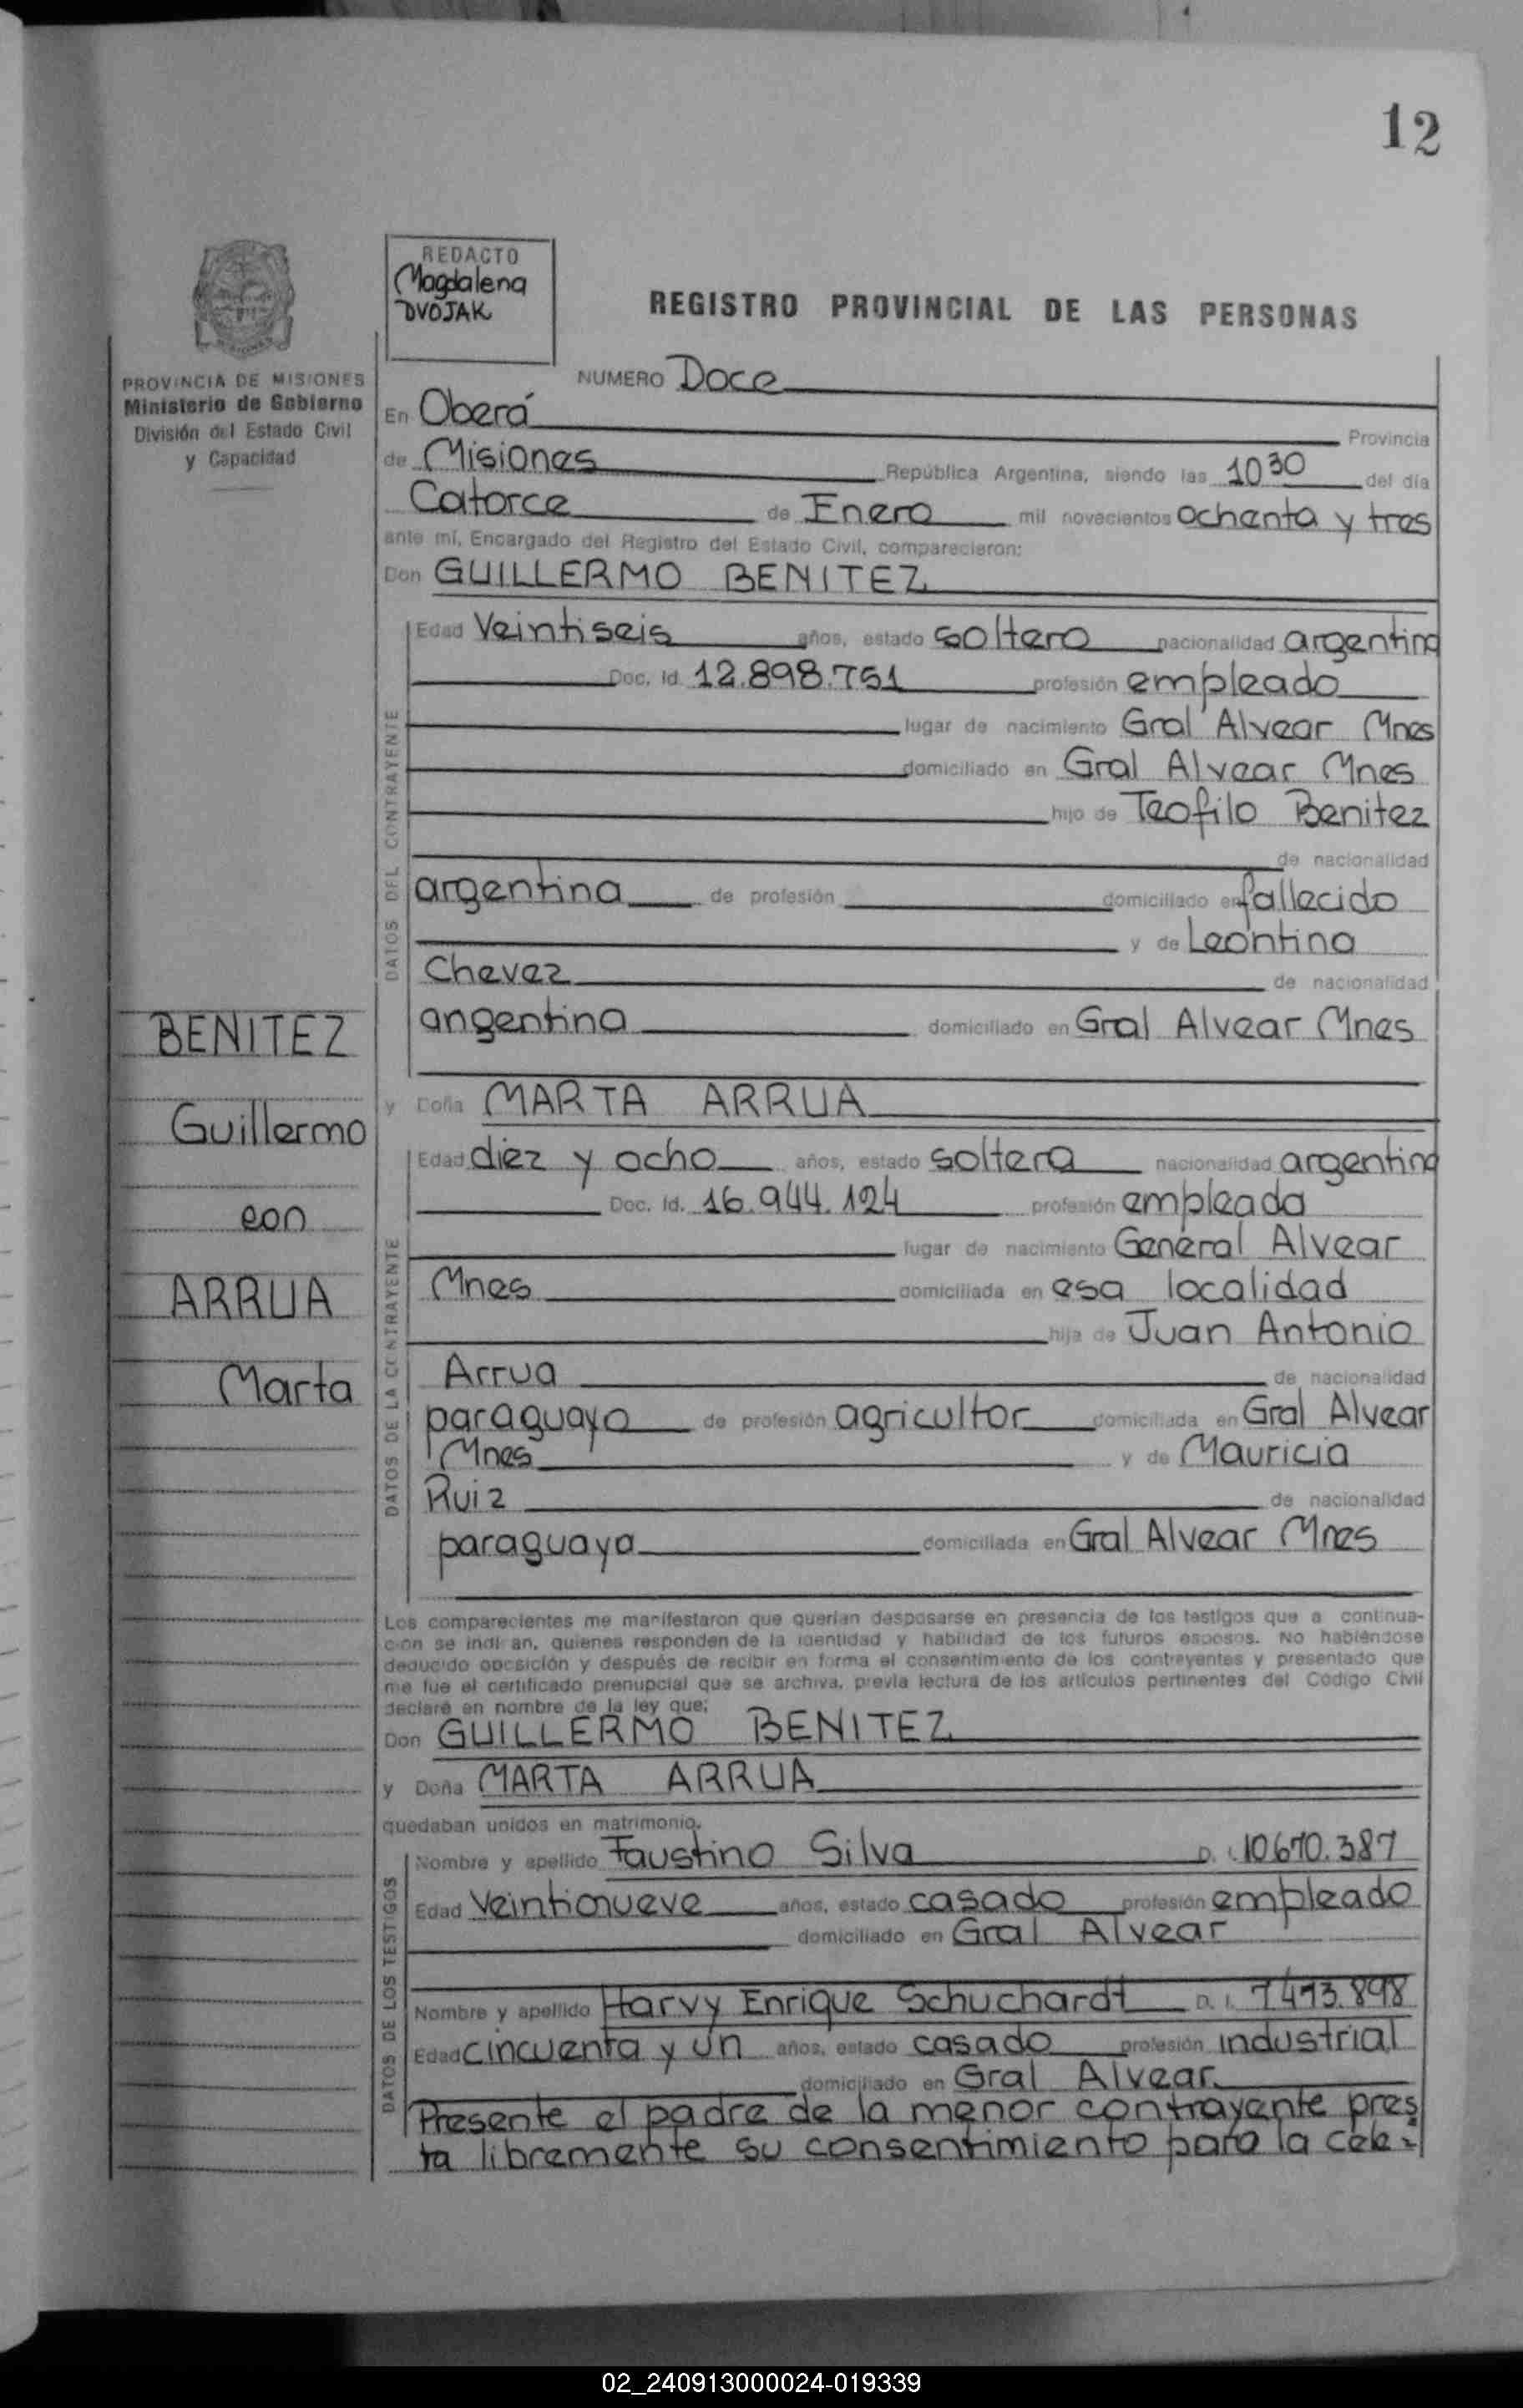 12
REDACTO
Magdalena
DVOJAK
REGISTRO PROVINCIAL DE LAS PERSONAS
PROVINCIA DE MISIONES
Ministerio de Gobierno
División del Estado Civil
y Capacidad
NUMERO Doce
En Oberá Provincia
de Misiones República Argentina, siendo las 10 30 del día
Catorce de Enero mil novecientos ochenta y tres
ante mí, Encargado del Registro del Estado Civil, comparecieron:
Don GUILLERMO BENITEZ
DATOS DEL CONTRAYENTE
Edad Veintiseis años, estado soltero nacionalidad argentina
Doc. Id. 12.898.751 profesión empleado
lugar de nacimiento Gral Alvear Mnes
domiciliado en Gral Alvear Mnes
hijo de Teofilo Benitez
de nacionalidad
argentina de profesión domiciliado en fallecido
y de Leontina
Chevez de nacionalidad
angentina domiciliado en Gral Alvear Mnes
BENITEZ
Guillermo
con
ARRUA
Marta
y Doña MARTA ARRUA
DATOS DE LA CONTRAYENTE
Edad diez y ocho años, estado soltera nacionalidad argentina
Doc. Id. 16.944.124 profesión empleada
lugar de nacimiento General Alvear
Mnes domiciliada en esa localidad
hija de Juan Antonio
Arrua de nacionalidad
paraguaya de profesión agricultor domiciliada en Gral Alvear
Mnes y de Mauricia
Ruiz de nacionalidad
paraguaya domiciliada en Gral Alvear Mnes
Los comparecientes me manifestaron que querían desposarse en presencia de los testigos que a continua-
ción se indican, quienes responden de la identidad y habilidad de los futuros esposos. No habiéndose
deducido oposición y después de recibir en forma el consentimiento de los contrayentes y presentado que
me fue el certificado prenupcial que se archiva, previa lectura de los artículos pertinentes del Código Civil
declaré en nombre de la ley que:
Don GUILLERMO BENITEZ
y Doña MARTA ARRUA
quedaban unidos en matrimonio.
DATOS DE LOS TESTIGOS
Nombre y apellido Faustino Silva D. I. 10670.387
Edad Veintinueve años, estado casado profesión empleado
domiciliado en Gral Alvear
Nombre y apellido Harvy Enrique Schuchardt D. I. 7493.898
Edad cincuenta y un años, estado casado profesión industrial
domiciliado en Gral Alvear
Presente el padre de la menor contrayente pres
ta libremente su consentimiento para la cele-
02_240913000024-019339